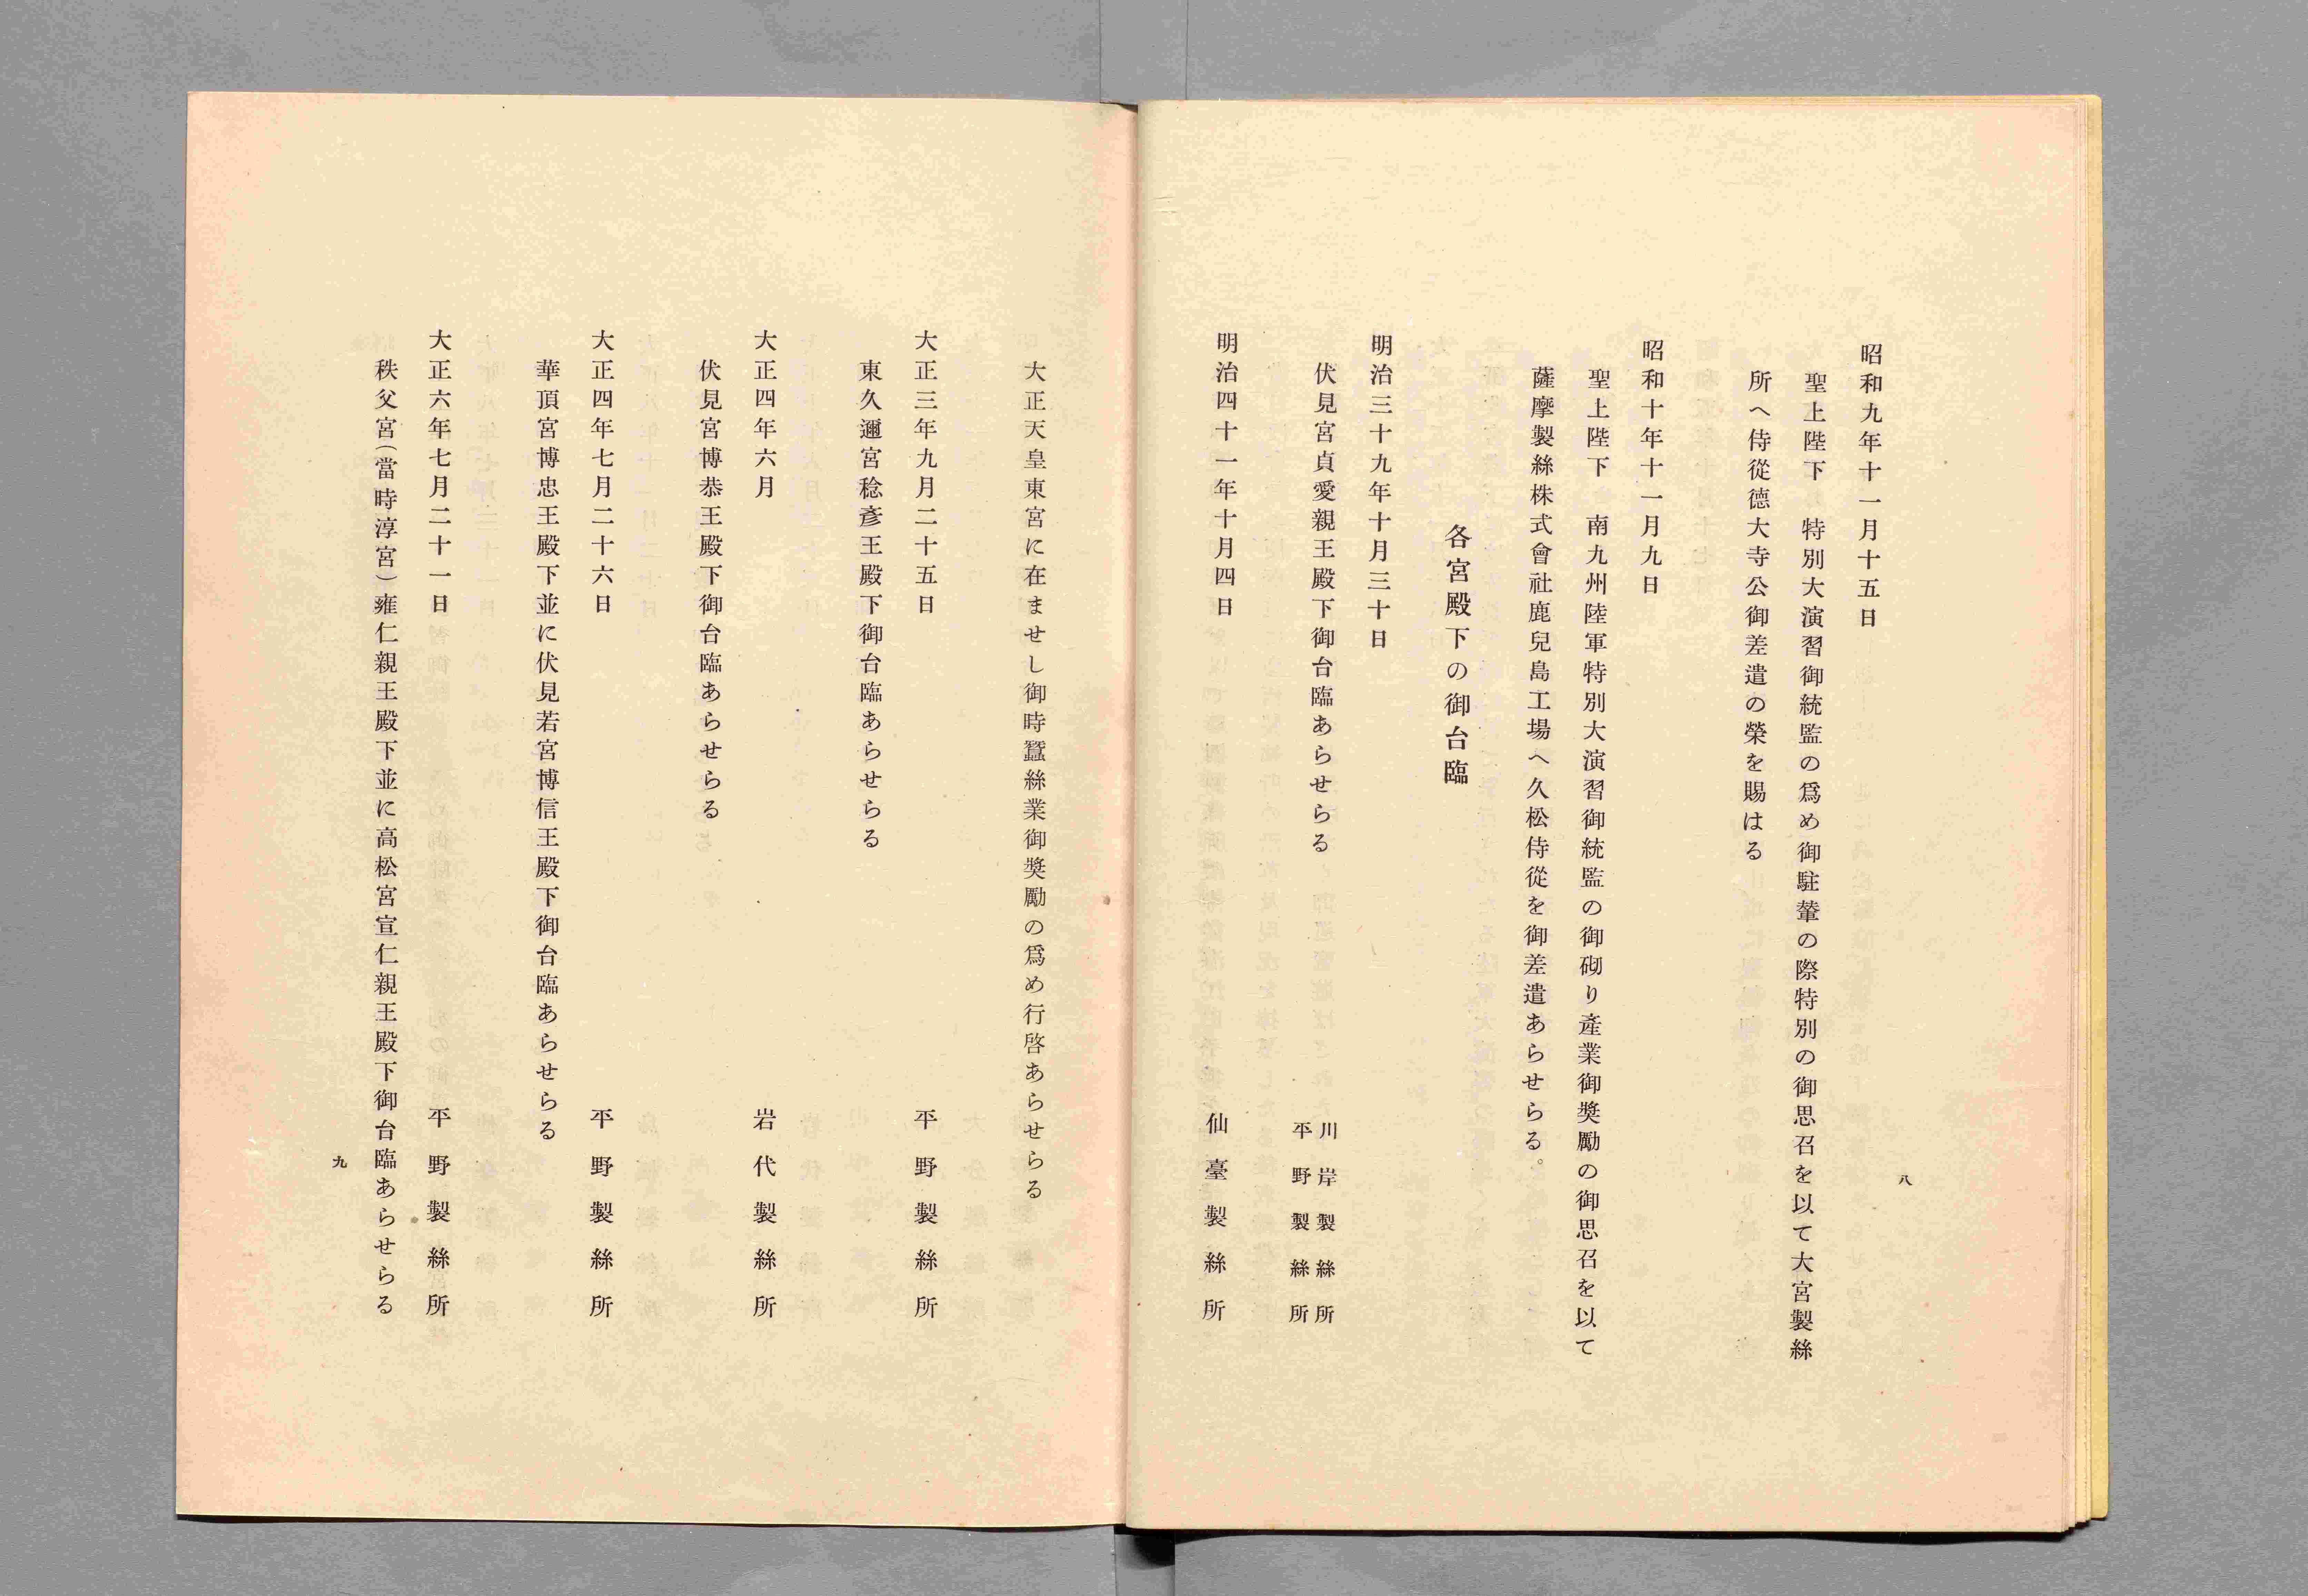 八
昭和九年十一月十五日
聖上陛下　特別大演習御統監の爲め御駐輦の際特別の御思召を以て大宮製絲
所へ侍從德大寺公御差遣の榮を賜はる
昭和十年十一月九日
聖上陛下　南九州陸軍特別大演習御統監の御砌り產業御奬勵の御思召を以て
薩摩製絲株式會社鹿兒島工場へ久松侍從を御差遣あらせらる。
各宮殿下の御台臨
明治三十九年十月三十日
川岸製絲所
平野製絲所
伏見宮貞愛親王殿下御台臨あらせらる
明治四十一年十月四日　仙臺製絲所
大正天皇東宮に在ませし御時蠶絲業御奬勵の爲め行啓あらせらる
大正三年九月二十五日　平野製絲所
東久邇宮稔彥王殿下御台臨あらせらる
大正四年六月　岩代製絲所
伏見宮博恭王殿下御台臨あらせらる
大正四年七月二十六日　平野製絲所
華頂宮博忠王殿下並に伏見若宮博信王殿下御台臨あらせらる
大正六年七月二十一日　平野製絲所
秩父宮（當時淳宮）雍仁親王殿下並に高松宮宣仁親王殿下御台臨あらせらる
九